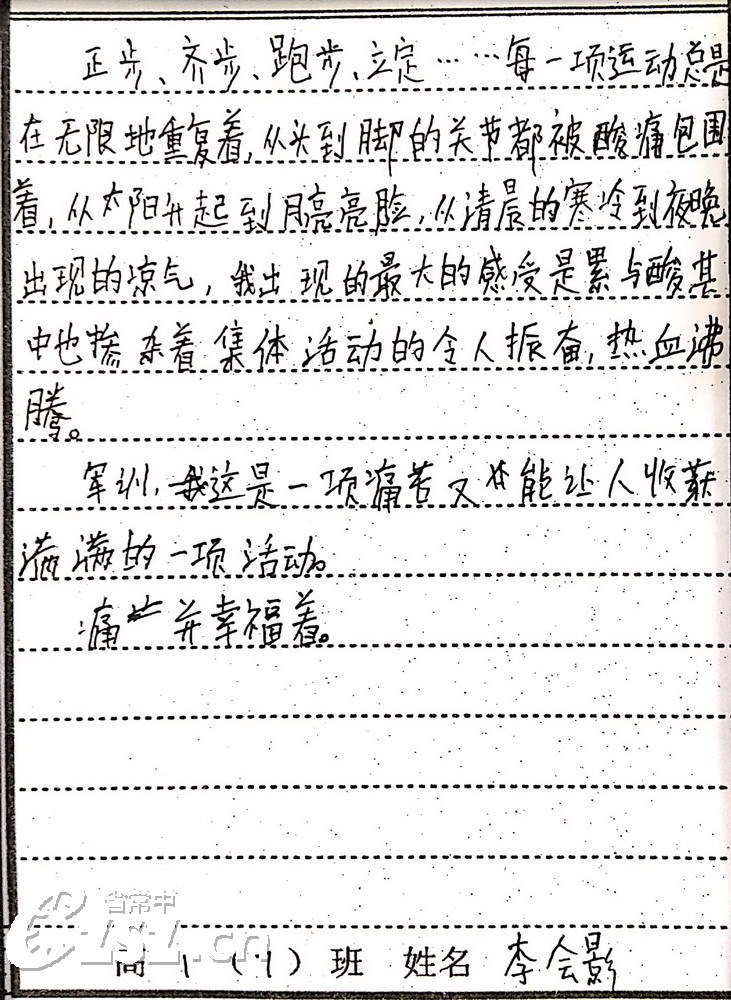 正步、齐步、跑步、立定……每一项运动总是
在无限地重复着,从头到脚的关节都被酸痛包围
着,从太阳升起到月亮亮脸,从清晨的寒冷到夜晚
出现的凉气,我出现的最大的感受是累与酸其
中也掺杂着集体活动的令人振奋,热血沸
腾。
军训,这是一项痛苦又能让人收获
满满的一项活动。
痛并幸福着。
省常中
CSZ.cn
高1(1)班 姓名 李会影